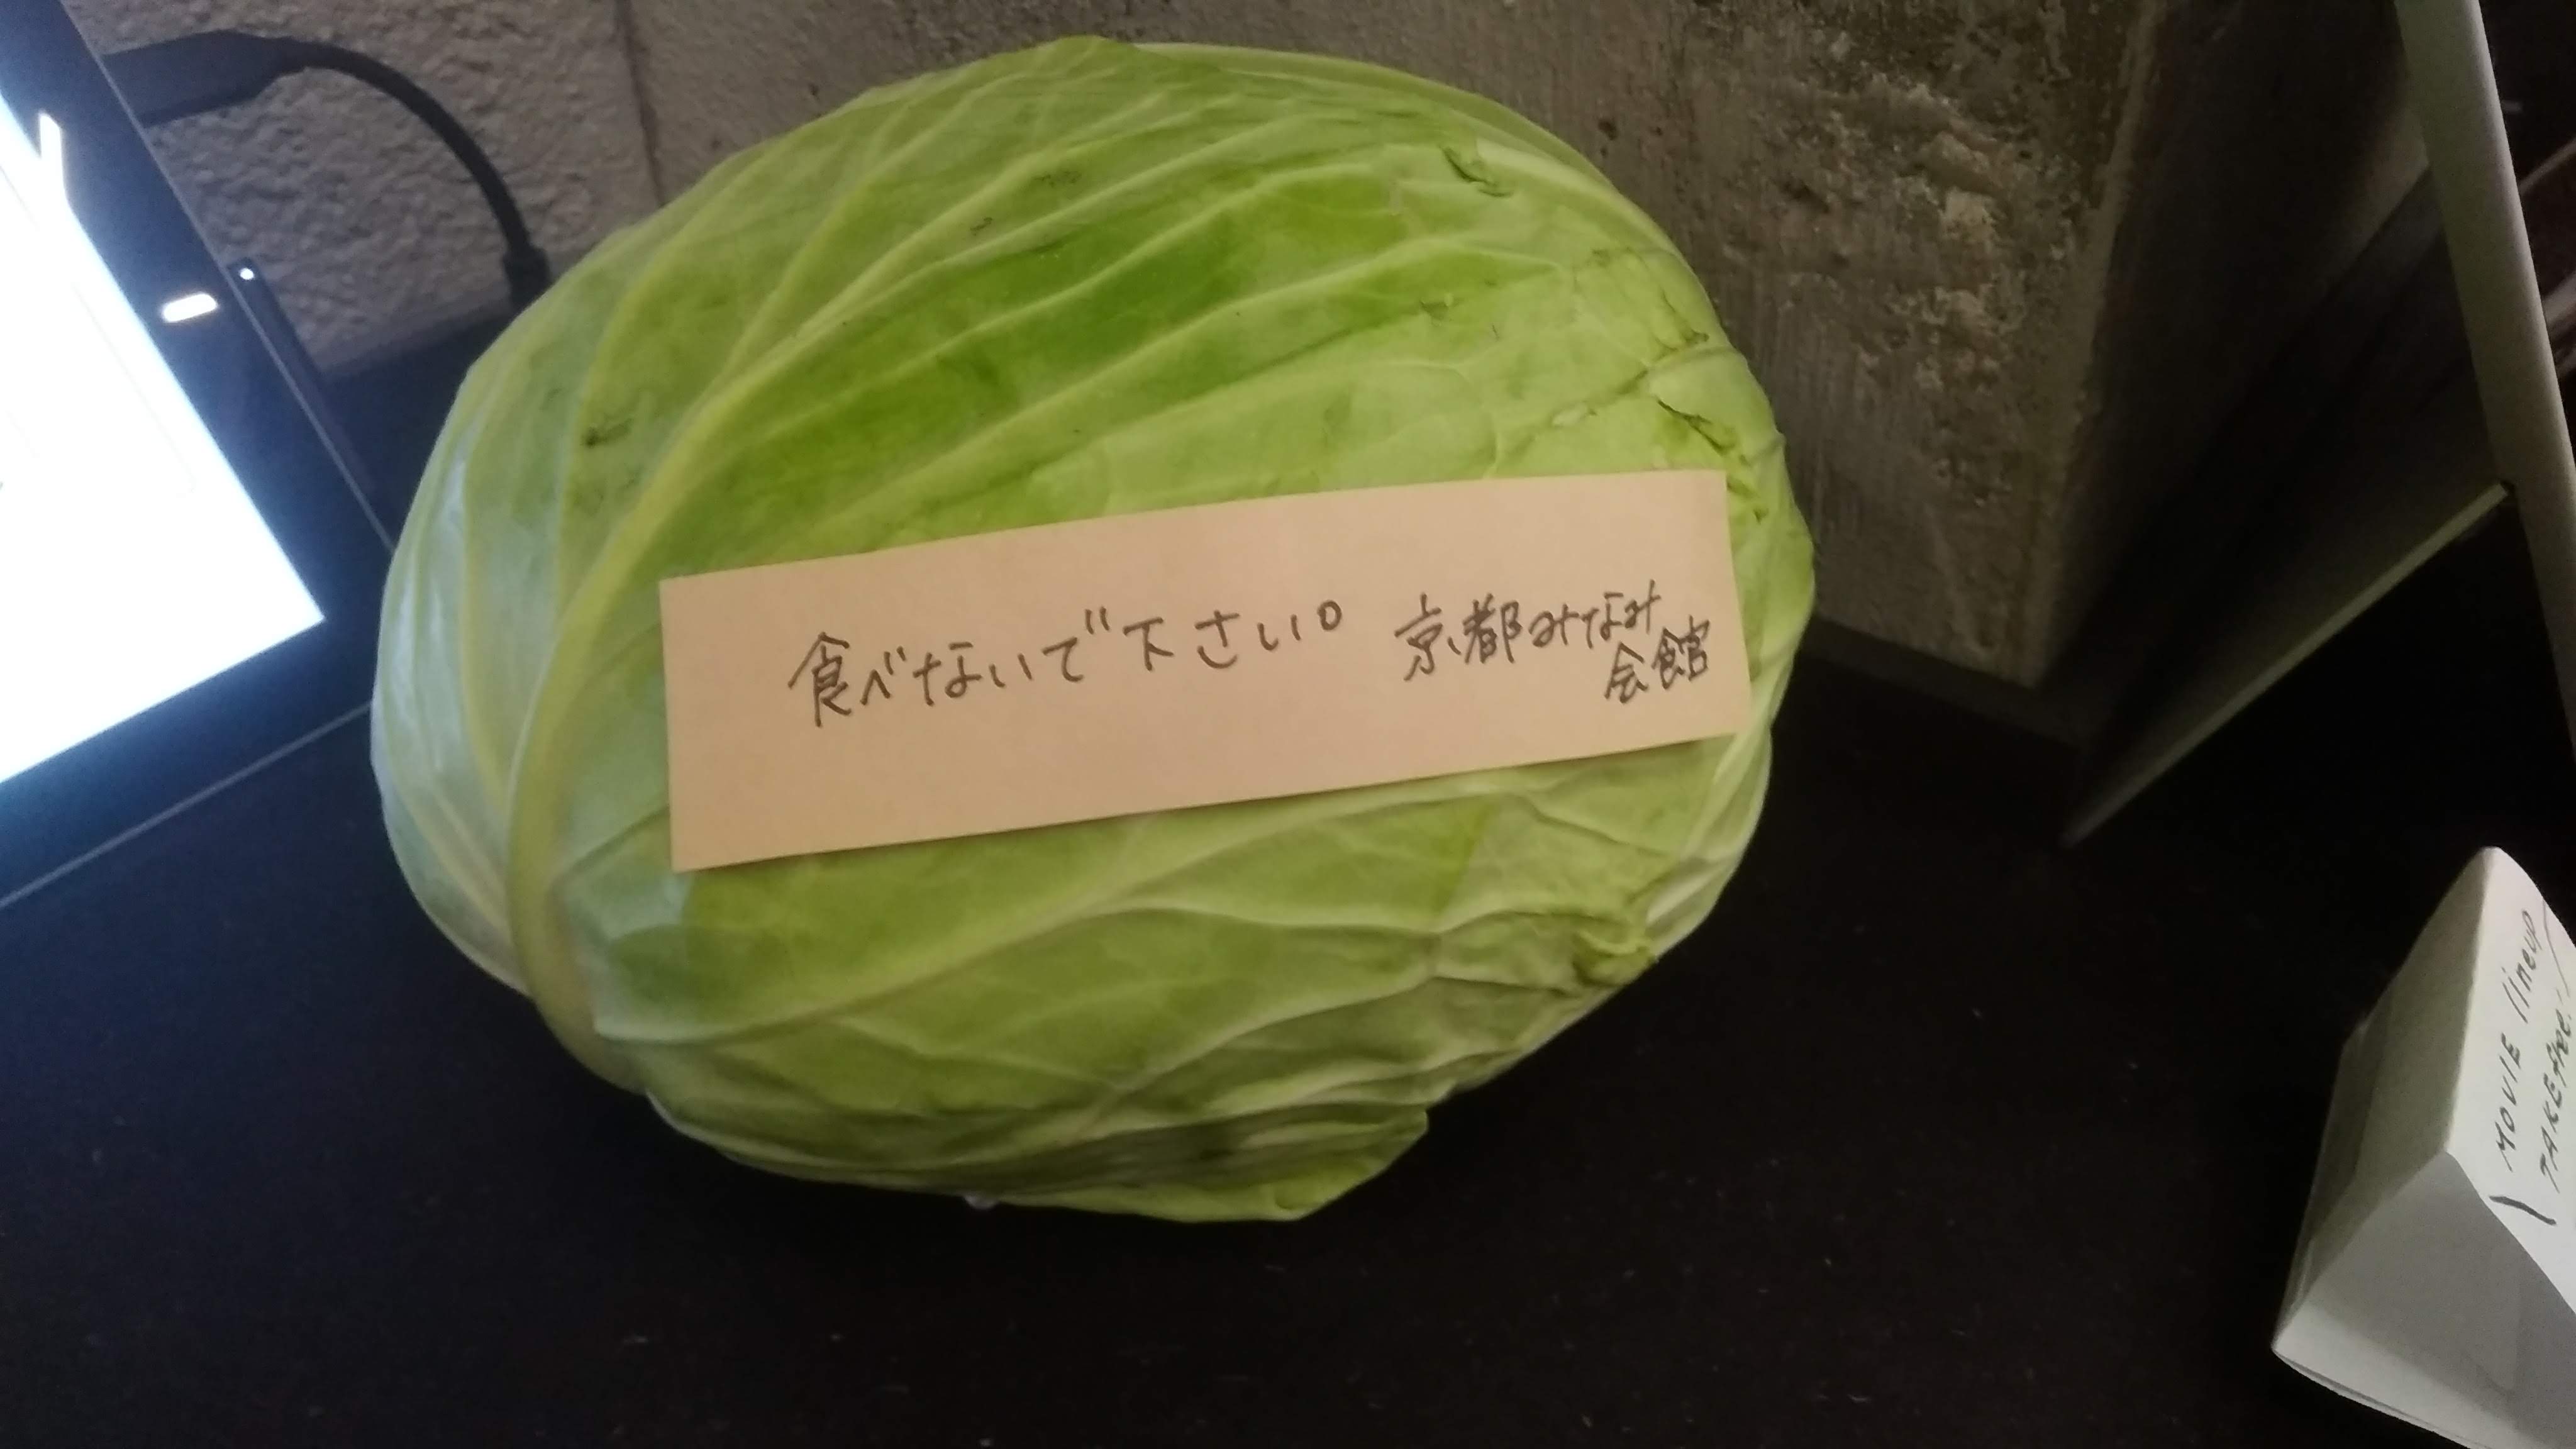 食べないで下さい。 京都みなみ
会館
MOVIE lineup
TAKE free!